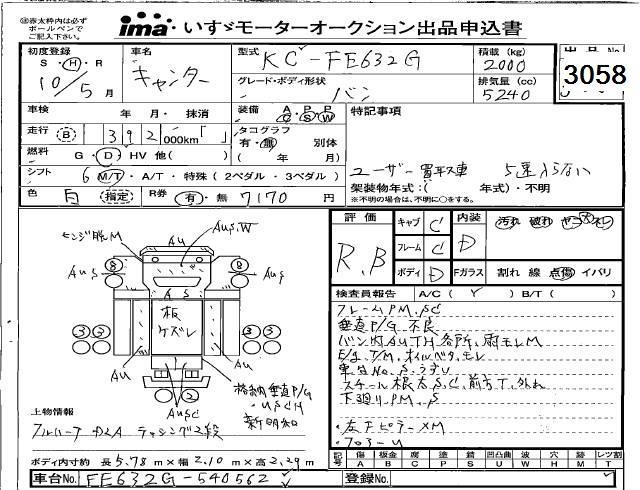 ㊟赤太枠内は必ず
ボールペンで
ご記入下さい。
ima いすゞモーターオークション出品申込書
初度登録
S・H・R
10/5月
車名
キャンター
型式 KC-FE632G
グレード・ボディ形状
バン
積載 (kg)
2000
排気量 (cc)
5240
出品No.
3058
車検 年 月・抹消
走行 B 392 000km「 」
燃料 G・D・HV 他( )
シフト 6 M/T・A/T・特殊(2ペダル・3ペダル)
色 白 指定 R券 有・無 7170 円
装備 A P P
C S W
タコグラフ
有・無 別体
( 年 月)
特記事項
ユーザー買取車 5速入らない
架装物年式:( 年式)・不明
※不明の場合は、不明に○をする。
評価
R.B
キャブ C
フレーム C
ボディ D
内装 D
Fガラス
汚れ 破れ
割れ 線 点傷 イバリ
検査員報告 A/C( Y ) B/T( )
フレームPM.SC
垂直P/G不良
バン内AUTH各所、雨モレM
E/g.T/M.オイルベタ.モレ
車台No.S.うすい
下廻りPM.S
・左下ピラーXM
・フロアーU
ヒンジ脱M
AuS.W
Au
AuS
AuS
8
8
AS
板
ケズレ
3 3
3 3
Au
Au
AuSC
格納垂直P/G
・USCH
新明和
上物情報
ボディ内寸約 長5.78m×幅2.10m×高2.29m
車台No. FE632G-540562
登録No.
記号 傷 板金 腐 塗 錆 凹凸曲 波 穴 跡 レツ割
A B C P S U W H M T